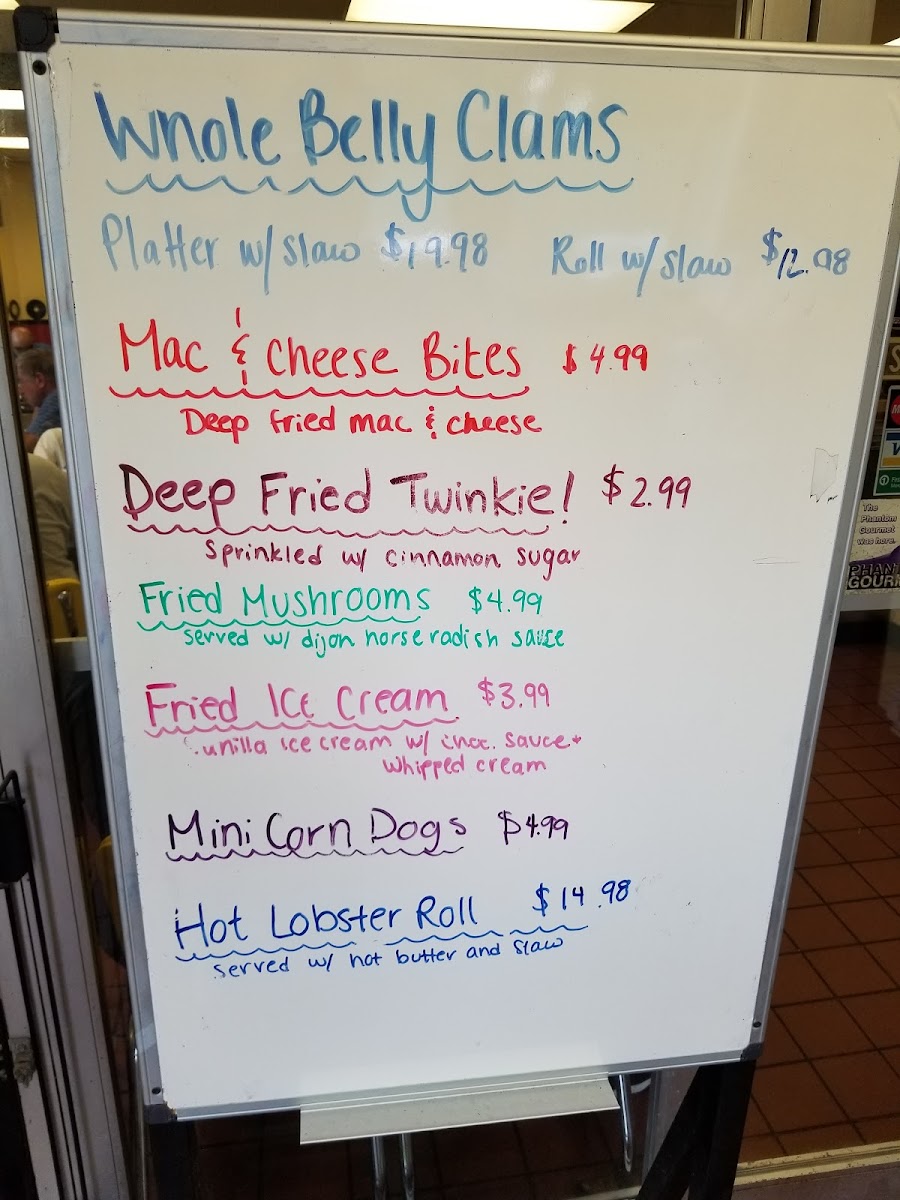 Whole Belly Clams
Platter w/ slaw $19.98 Roll w/ slaw $12.98
Mac & Cheese Bites $4.99
Deep fried mac & cheese
Deep Fried Twinkie! $2.99
Sprinkled w/ cinnamon sugar
Fried Mushrooms $4.99
served w/ dijon horseradish sauce
Fried Ice Cream $3.99
unilla ice cream w/ choc. sauce +
whipped cream
Mini Corn Dogs $4.99
Hot Lobster Roll $14.98
served w/ hot butter and slaw
The
Phantom
Gourmet
was here.
PHAN
GOUR